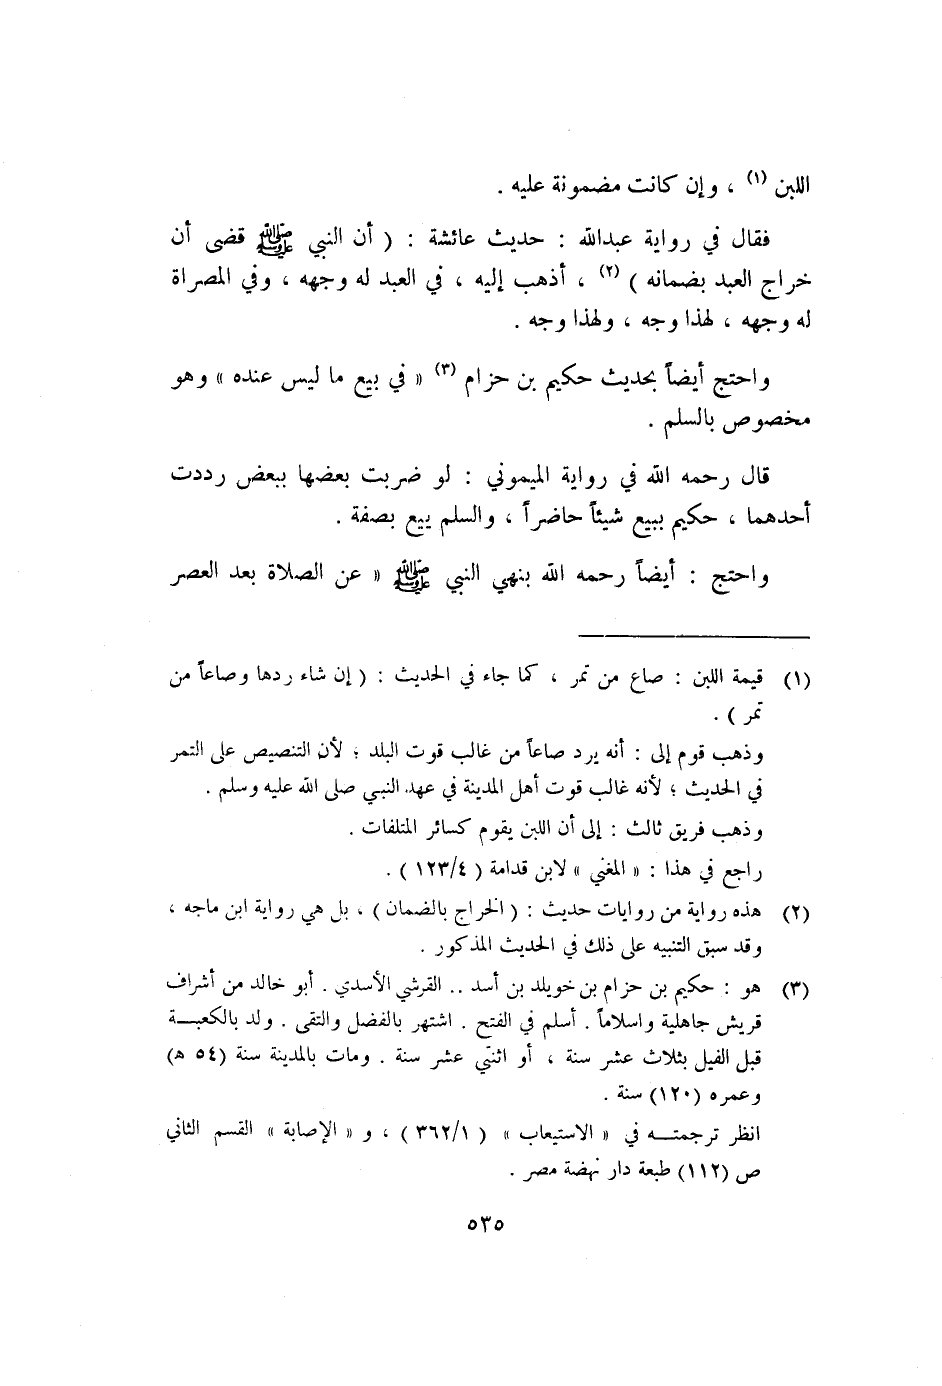 اللبن (١) ، وإن كانت مضمونة عليه .
فقال في رواية عبدالله : حديث عائشة : ( أن النبي ﷺ قضى أن
خراج العبد بضمانه ) (٢) ، أذهب إليه ، في العبد له وجهه ، وفي المصراة
له وجهه ، لهذا وجه ، ولهذا وجه .
واحتج أيضاً بحديث حكيم بن حزام (٣) « في بيع ما ليس عنده » وهو
مخصوص بالسلم .
قال رحمه الله في رواية الميموني : لو ضربت بعضها ببعض رددت
أحدهما ، حكيم يبيع شيئاً حاضراً ، والسلم بيع بصفة .
واحتج : أيضاً رحمه الله بنهي النبي ﷺ « عن الصلاة بعد العصر
(١) قيمة اللبن : صاع من تمر ، كما جاء في الحديث : ( إن شاء ردها وصاعاً من
تمر ) .
وذهب قوم إلى : أنه يرد صاعاً من غالب قوت البلد ؛ لأن التنصيص على التمر
في الحديث ؛ لأنه غالب قوت أهل المدينة في عهد النبي صلى الله عليه وسلم .
وذهب فريق ثالث : إلى أن اللبن يقوم كسائر المتلفات .
راجع في هذا : « المغني » لابن قدامة ( ١٢٣/٤ ) .
(٢) هذه رواية من روايات حديث : ( الخراج بالضمان ) ، بل هي رواية ابن ماجه ،
وقد سبق التنبيه على ذلك في الحديث المذكور .
(٣) هو : حكيم بن حزام بن خويلد بن أسد .. القرشي الأسدي . أبو خالد من أشراف
قريش جاهلية واسلاماً . أسلم في الفتح . اشتهر بالفضل والتقى . ولد بالكعبــة
قبل الفيل بثلاث عشر سنة ، أو اثنتي عشر سنة . ومات بالمدينة سنة (٥٤ ه)
وعمره (١٢٠) سنة .
انظر ترجمتــه في « الاستيعاب » ( ٣٦٢/١ ) ، و « الإصابة » القسم الثاني
ص (١١٢) طبعة دار نهضة مصر .
٥٣٥